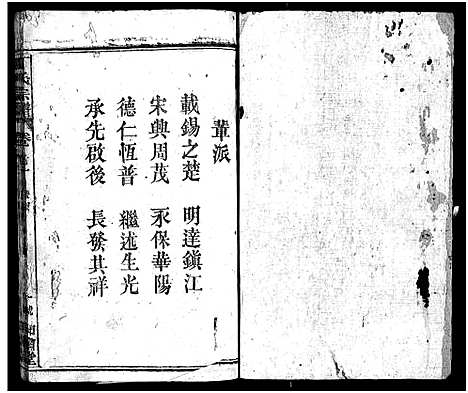 輩派
載錫之楚 明達鎭江
宋興周茂 永保華陽
德仁恆普 繼述生光
承先啟後 長發其祥